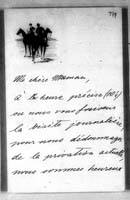 Ma chère Maman,
à l'heure précise (10½)
où nous vous faisions
la visite journalière,
pour nous dédommager
de la privation actuelle
nous sommes heureux